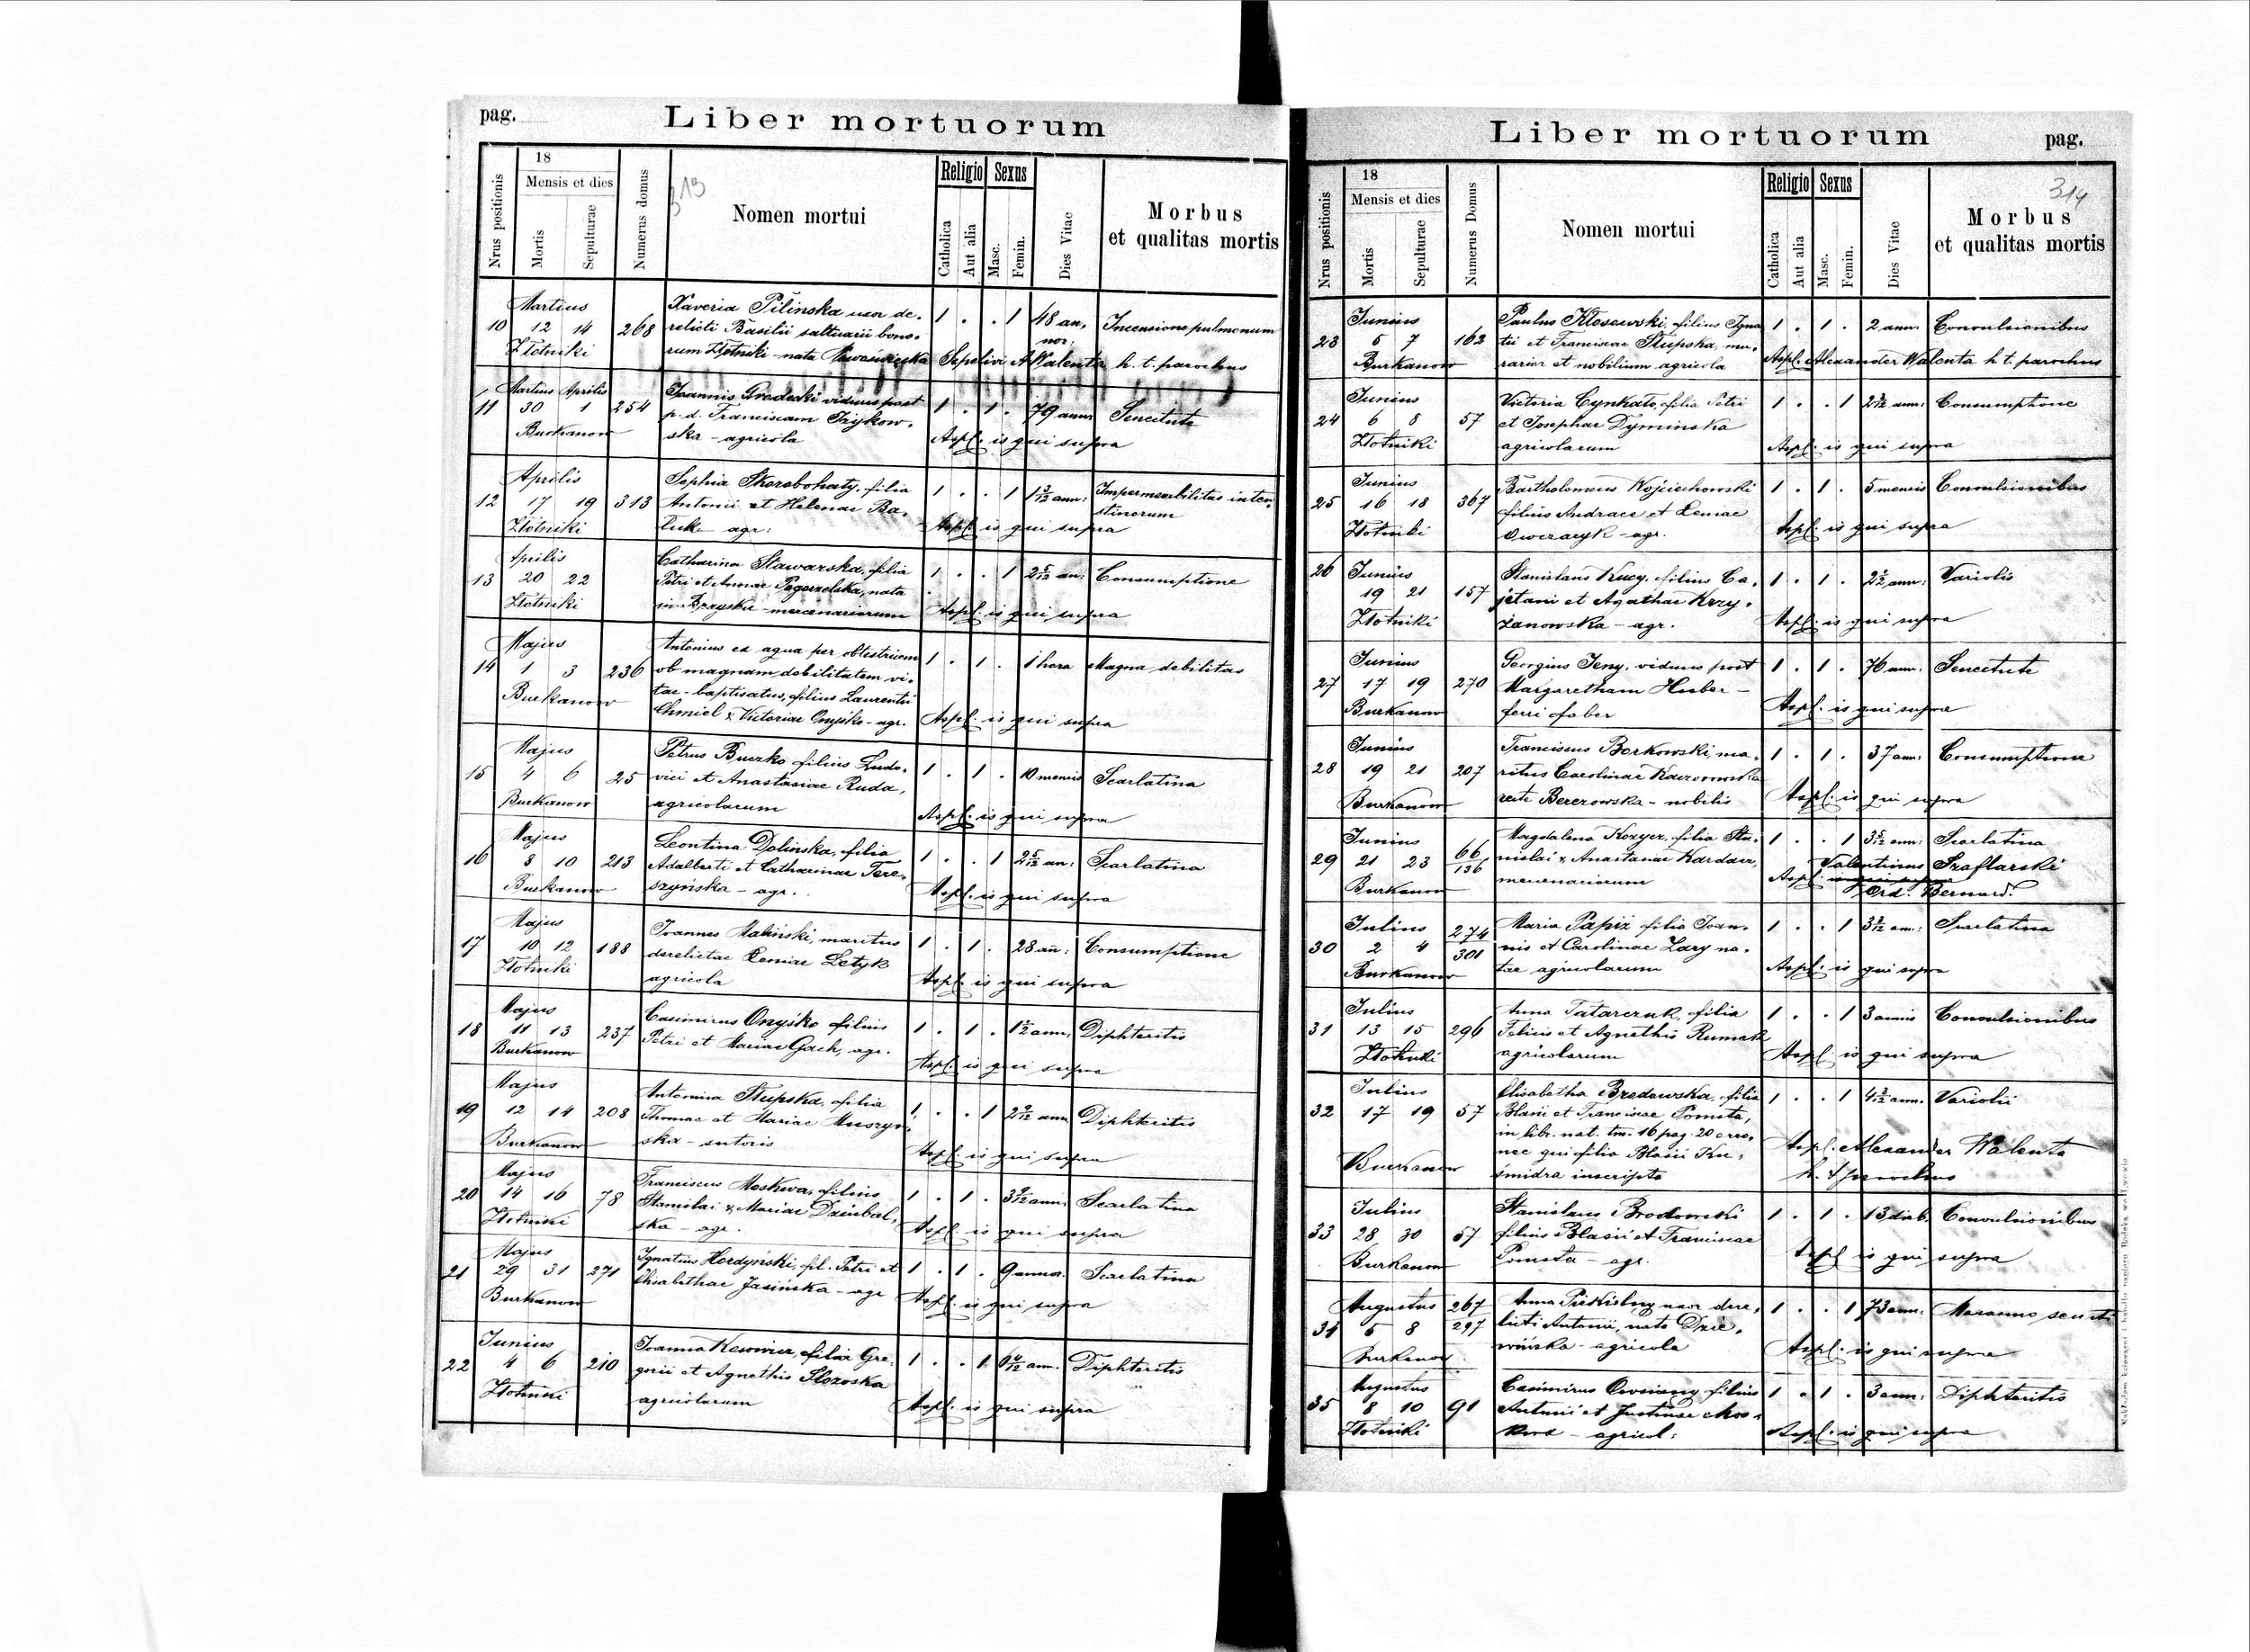 pag.
Liber mortuorum
Nrus positionis
18
Mensis et dies
Mortis
Sepulturae
Numerus domus
313
Nomen mortui
Religio
Catholica
Aut alia
Sexus
Masc.
Femin.
Dies Vitae
Morbus
et qualitas mortis
10 Martius 12 14 268 Xaveria Pilinska uxor de- 1 . . 1 48 an. Incensione pulmonum
relicti Basilii saltuarii bono-
Złotniki rum Złotniki - nata Sepelivi A Walenta h. t. parochus
11 Martius Aprilis 30 1 254 Joannis Grodecki viduus post 1 . 1 . 79 anno Senectute
p. d. Franciscam Gzykow-
Burkanow ska - agricola Aspl. is qui supra
12 Aprilis 17 19 313 Sophia Skorobohaty, filia 1 . . 1 1 3/12 ann: Impermeabilitas intes-
Antonii et Helenae Ba- stinorum
Złotniki luk - agr: Aspl. is qui supra
13 Aprilis 20 22 Catharina Stawarska, filia 1 . . 1 2 5/12 an: Consumptione
Petri et Annae Pogorzelska, nata
Złotniki in - mercenariorum Aspl. is qui supra
14 Majus 1 3 236 Antonius ex aqua per obstetricem 1 . 1 . 1 hora Magna debilitas
ob magnam debilitatem vi-
Burkanow tae - baptisatus, filius Laurentii
Chmiel & Victoriae Onyśko - agr. Aspl. is qui supra
15 Majus 4 6 25 Petrus Buczko filius Ludo- 1 . 1 . 10 mensis Scarlatina
vici et Anastasiae Ruda,
Burkanow agricolarum Aspl. is qui supra
16 Majus 8 10 213 Leontina Dolińska, filia 1 . . 1 2 5/12 an: Scarlatina
Adalberti et Catharinae Tere-
Burkanow szyńska - agr. Aspl. is qui supra
17 Majus 10 12 188 Joannes Maliński, maritus 1 . 1 . 28 an: Consumptione
derelictae Xeniae Letyk
Złotniki agricola Aspl. is qui supra
18 Majus 11 13 237 Casimirus Onyśko filius 1 . 1 . 1 1/2 ann. Diphteritis
Burkanow Petri et Mariae Gach, agr.
Aspl. is qui supra
19 Majus 12 14 208 Antonina Słupska, filia 1 . . 1 ann. Diphteritis
Thomae et Mariae Muszyn-
Burkanow ska - sutoris Aspl. is qui supra
20 Majus 14 16 78 Franciscus Moskwa, filius 1 . 1 . ann. Scarlatina
Stanislai & Mariae Dziubal-
Złotniki ska - agr. Aspl. is qui supra
21 Majus 29 31 271 Ignatius Hordyński, fil. Petri et 1 . 1 . 9 annor. Scarlatina
Burkanow Elisabethae Jasińska - agr
Aspl. is qui supra
22 Junius 4 6 210 Joanna filia Gre- 1 . . 1 ann. Diphteritis
gorii et Agnethis
Złotniki agricolarum Aspl. is qui supra
Liber mortuorum
pag.
Nrus positionis
18
Mensis et dies
Mortis
Sepulturae
Numerus Domus
Nomen mortui
Religio
Catholica
Aut alia
Sexus
Masc.
Femin.
Dies Vitae
314
Morbus
et qualitas mortis
23 Junius 5 7 162 Paulus Kłosowski, filius Igna- 1 . 1 . 2 ann. Convulsionibus
tii et Franciscae Słupska, mu-
Burkanow rarior et nobilium agricola Aspl. Alexander Walenta h. t. parochus
24 Junius 6 8 57 Victoria Cynkato, filia Petri 1 . . 1 ann: Consumptione
et Josephae Dyminska
Złotniki agricolarum Aspl. is qui supra
25 Junius 16 18 367 Bartholomeus Wojciechowski 1 . 1 . 5 mensis Convulsionibus
filius Andreae et Xeniae
Złotniki Owczaryk - agr. Aspl. is qui supra
26 Junius 19 21 157 Stanislaus Kucy, filius Ca- 1 . 1 . ann: Variolis
jetani et Agathae Krzy-
Złotniki żanowska - agr. Aspl. is qui supra
27 Junius 17 19 270 Georgius Jeny, viduus post 1 . 1 . 76 ann: Senectute
Margaretham Huber -
Burkanow ferri faber Aspl. is qui supra
28 Junius 19 21 207 Franciscus Borkowski, ma- 1 . 1 . 37 ann: Consumptione
ritus Carolinae
Burkanow recte Berezowska - nobilis Aspl. is qui supra
29 Junius 21 23 66/136 Magdalena Kozyer, filia Sta- 1 . . 1 3 5/12 ann: Scarlatina
nislai & Anastasiae Kardasz, Valentinus Szaflarski
Burkanow mercenariorum Aspl. Ord. Bernard.
30 Julius 2 4 274/301 Maria Papiż filia Joan- 1 . . 1 ann: Scarlatina
nis et Carolinae Zary na-
Burkanow tae agricolarum Aspl. is qui supra
31 Julius 13 15 296 Anna Tatarczuk, filia 1 . . 1 3 annis Convulsionibus
Felicis et Agnethis Rumak
Złotniki agricolarum Aspl. is qui supra
32 Julius 17 19 57 Elisabetha Brodowska, filia 1 . . 1 ann. Variolis
Blasii et Franciscae Pomęta,
in libr. nat. tm. 16 pag. 20 erro- Aspl. Alexander Walenta
nee qui filia Blasii Ku- h. t. parochus
Burkanow śmidra inscripta
33 Julius 28 30 57 Stanislaus Brodowski 1 . 1 . 13 dieb. Convulsionibus
filius Blasii et Franciscae
Burkanow Pomęta - agr. Aspl. is qui supra
34 Augustus 5 8 267/297 Anna uxor dere- 1 . . 1 73 ann: Marasmo senili
licti Antonii, nata Dzie-
Burkanow wińska - agricola Aspl. is qui supra
35 Augustus 8 10 91 Casimirus Owsiany filius 1 . 1 . 3 ann: Diphteritis
Antonii et Justinae Mos-
Złotniki kwa - agricol: Aspl. is qui supra